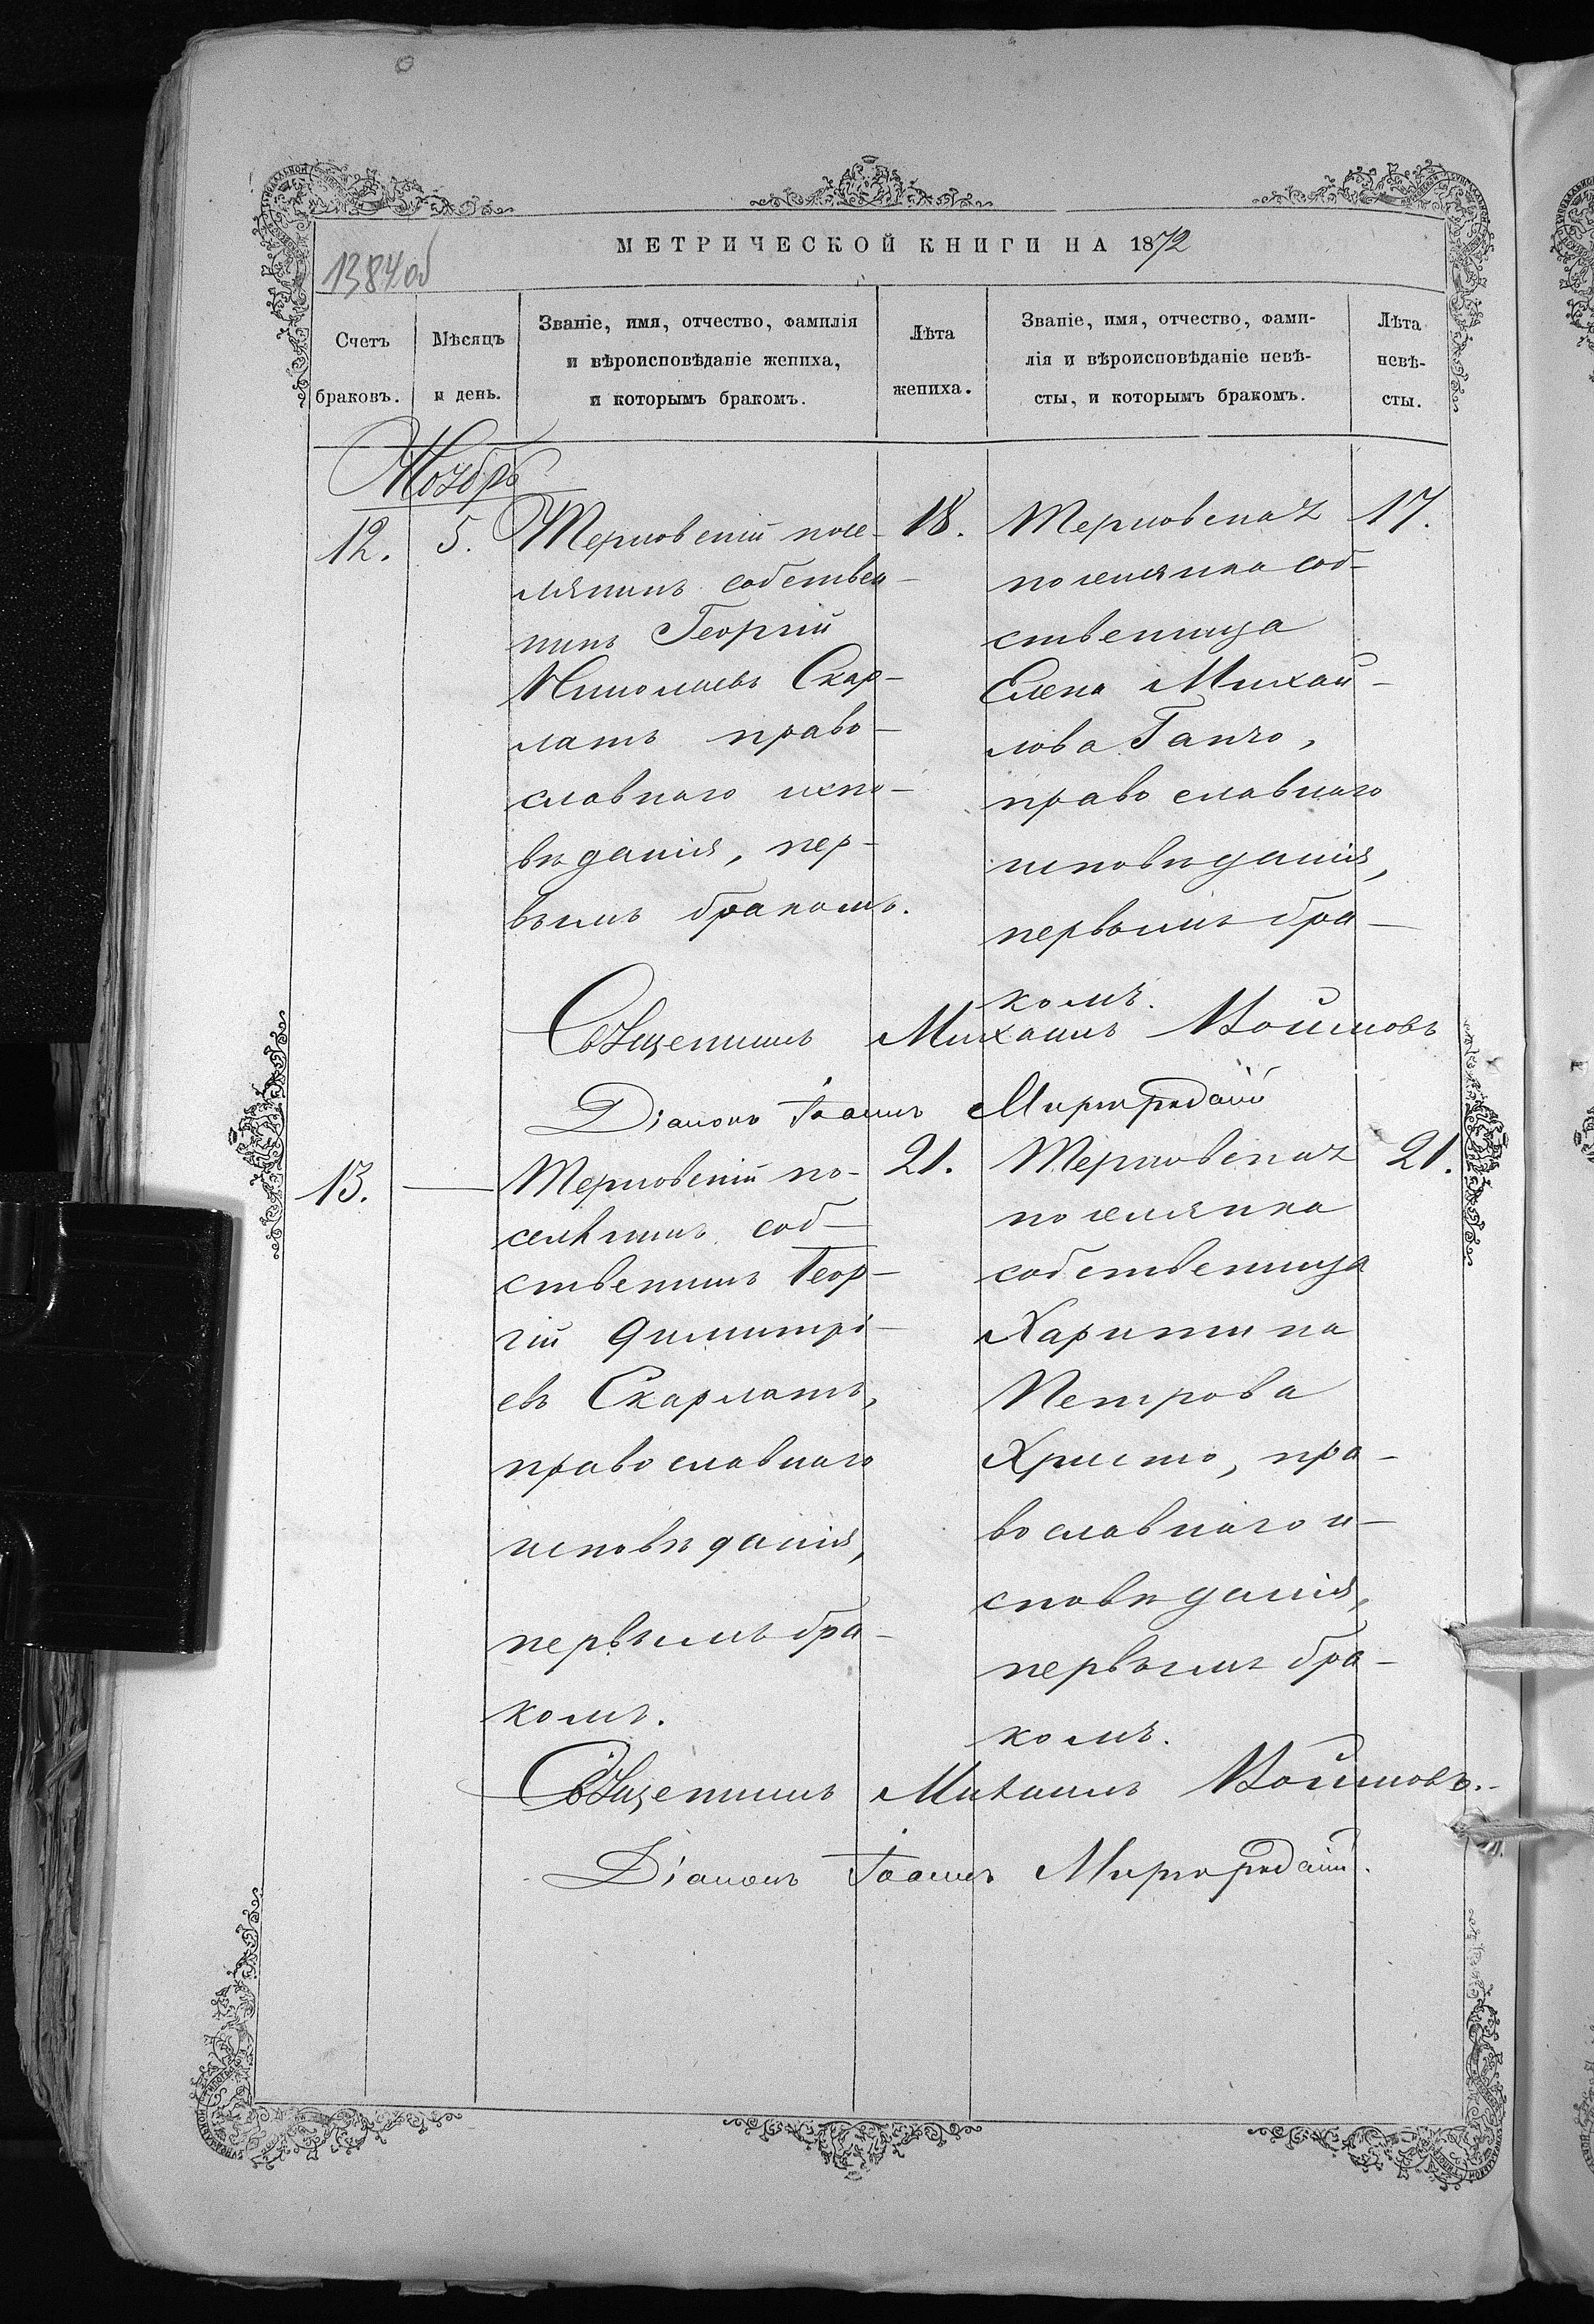 МЕТРИЧЕСКОЙ КНИГИ НА 1872
1384 об
Счетъ браковъ.
Мѣсяцъ и день.
Званіе, имя, отчество, фамилія
и вѣроисповѣданіе жениха,
и которымъ бракомъ.
Лѣта
жениха.
Званіе, имя, отчество, фами-
лія и вѣроисповѣданіе невѣ-
сты, и которымъ бракомъ.
Лѣта
невѣ-
сты.
Ноябрь
12.
5.
Терновскій посе-
лянинъ собствен-
никъ Георгій
Николаевъ Скар-
латъ право-
славнаго испо-
вѣданія, пер-
вымъ бракомъ.
18.
Терновская
поселянка соб-
ственница
Елена Михай-
лова Ганчо,
православнаго
исповѣданія,
первымъ бра-
комъ.
17.
Священникъ Михаилъ
Діаконъ Іоаннъ
13.
—
Терновскій по-
селянинъ соб-
ственникъ Геор-
гій Димитрі-
евъ Скарлатъ,
православнаго
исповѣданія,
первымъ бра-
комъ.
21.
Терновская
поселянка
собственница
Харитина
Петрова
Христо, пра-
вославнаго и-
сповѣданія,
первымъ бра-
комъ.
21.
Священникъ Михаилъ
Діаконъ Іоаннъ